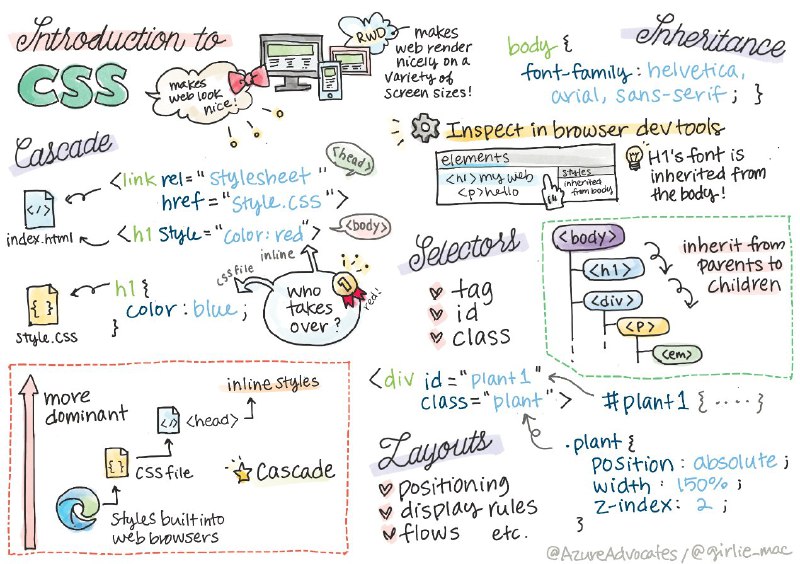 Introduction to
CSS
makes
web look
nice!
RWD
makes
web render
nicely on a
variety of
screen sizes!
Cascade
<head>
<link rel="stylesheet"
href="style.css">
index.html
<h1 style="color:red">
<body>
inline
css file
who
takes
over?
1
red!
h1 {
color: blue;
}
{ }
style.css
more
dominant
inline styles
</>
<head>
{ }
CSS file
Cascade
Styles built into
web browsers
Inheritance
body {
font-family: helvetica,
arial, sans-serif; }
Inspect in browser dev tools
elements
<h1>my web
<p>hello
styles
inherited
from body
H1's font is
inherited from
the body!
Selectors
tag
id
class
<body>
<h1>
<div>
<P>
<em>
inherit from
parents to
children
<div id="plant1"
class="plant">
#plant1 {····}
.plant {
position: absolute;
width: 150%;
z-index: 2;
}
Layouts
positioning
display rules
flows etc.
@AzureAdvocates/@girlie_mac